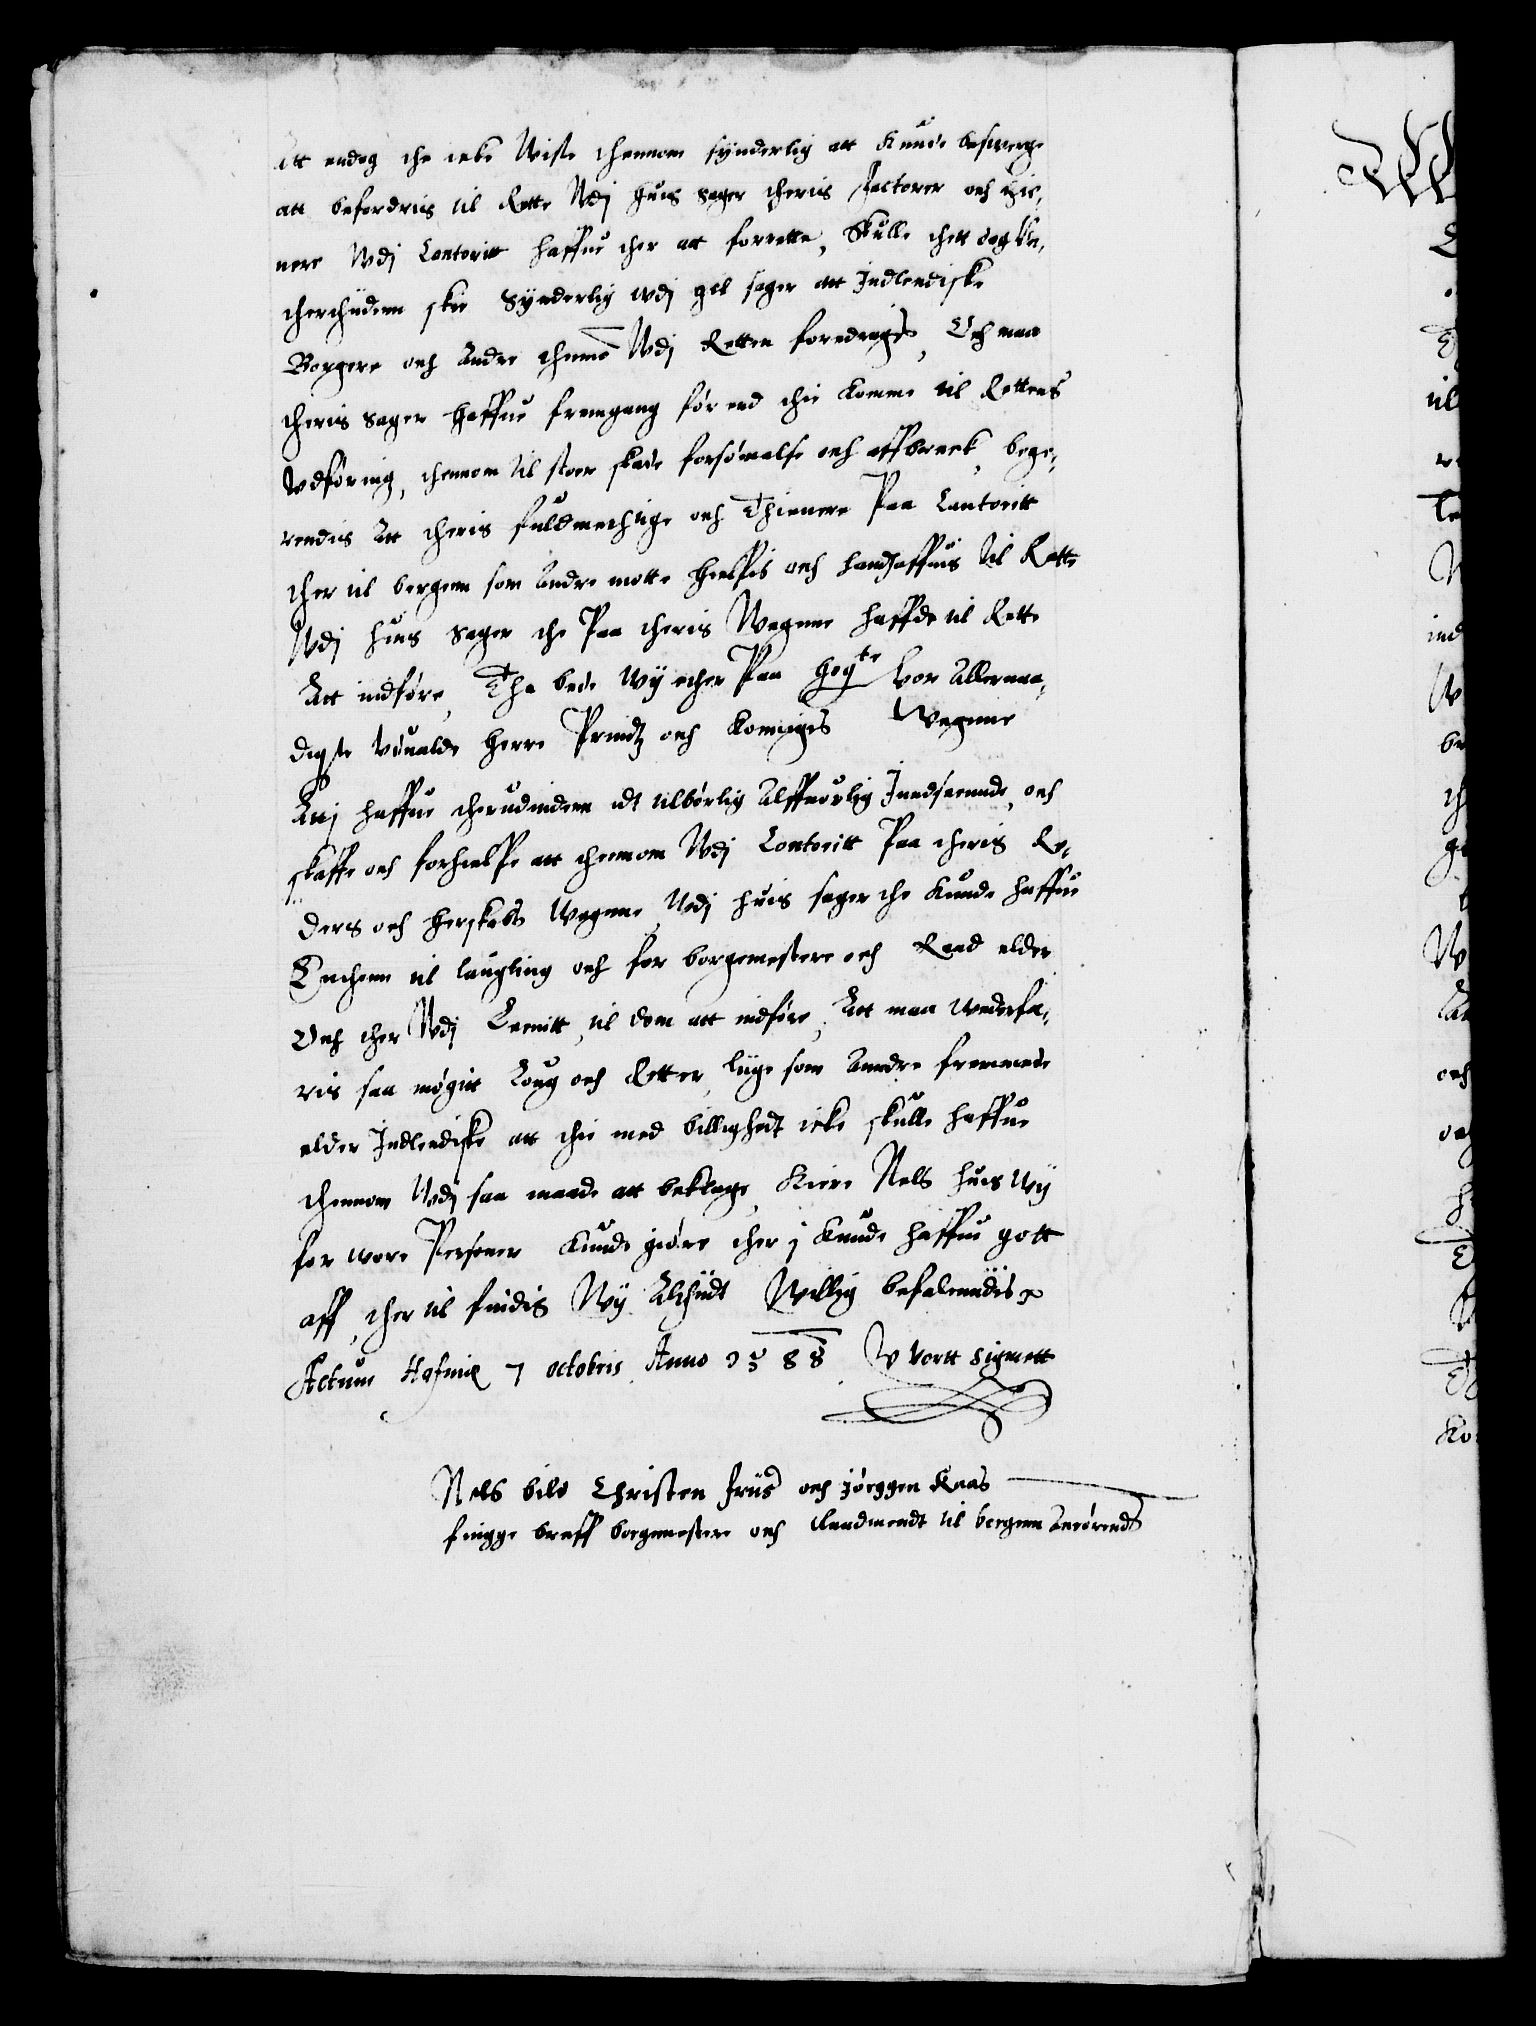 Att endog the icke Viste thennom synderlig att Kunde besuerge
att befordris til Rette Vdj huis sager theris factorer och thie,
nere Vdj Contoritt haffue ther att forrette, Skulle thett dog
therhiidenn skie synderlig vdj giel sager att Indlendiske
Borgere och Andre themō Vdj Retten foredrages, Och maa
theris sager haffue fremgang før end thie Komme til Rettens
Vdføring, thennom til stoer skade forsømelse och affbreck, bege,
rendis Att theris fuldmechtige och Thienere Paa Contoritt
ther til bergenn som Andre motte hielpis och handhaffuis til Rette
Vdj huis sager the Paa theris Wegnne haffde til Rette
Att indføre, Tha bede Wij ether Paa hogte Vor Allernaa,
digste Vduald Herre Prindtz och Konniges Wegnne
Attj haffue therudindenn idt tilbørlig Alffuorlig Inndseennde, och
skaffe och forhielpe att thennom Vdj Contoritt Paa theris Re,
ders och Herskabs Wegnne Vdj huis sager the Kunde haffue
Enthenn til laugting och for borgemestere och Raad elder
Och ther Vdj Lennitt, til dom att indføre, Att maa Vederfa,
ris saa møgitt Loug och Retter, liige som Anndre fremmede
elder Indlendiske att thie med billighedt icke skulle haffue
thennom Vdj saa maade att beklage Kiere Nels huis Wij
for wore Personer Kunde giøre ther j Kunde haffue gott
aff, ther til findis Wij Althiidt Willig befalenndis
Actum Hafniæ 7 octobris Anno 1588 V Vortt Signett
Nels bild Christen friis och Jørggen Kaas
fingge breff borgemestere och Raadmendt til bergenn Anrørendes